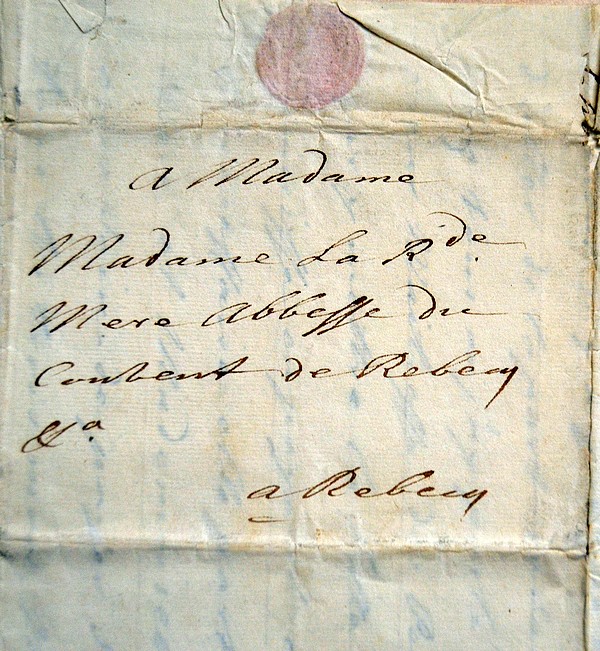 A Madame
Madame La R.de
Mere Abbesse du
Couvent de Rebecq
&a.
a Rebecq